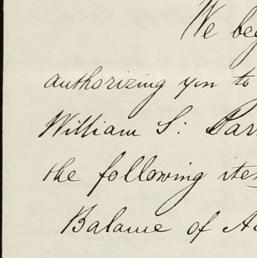 We beg
authorizing you to
William S: Bar
the following ite
Balance of A